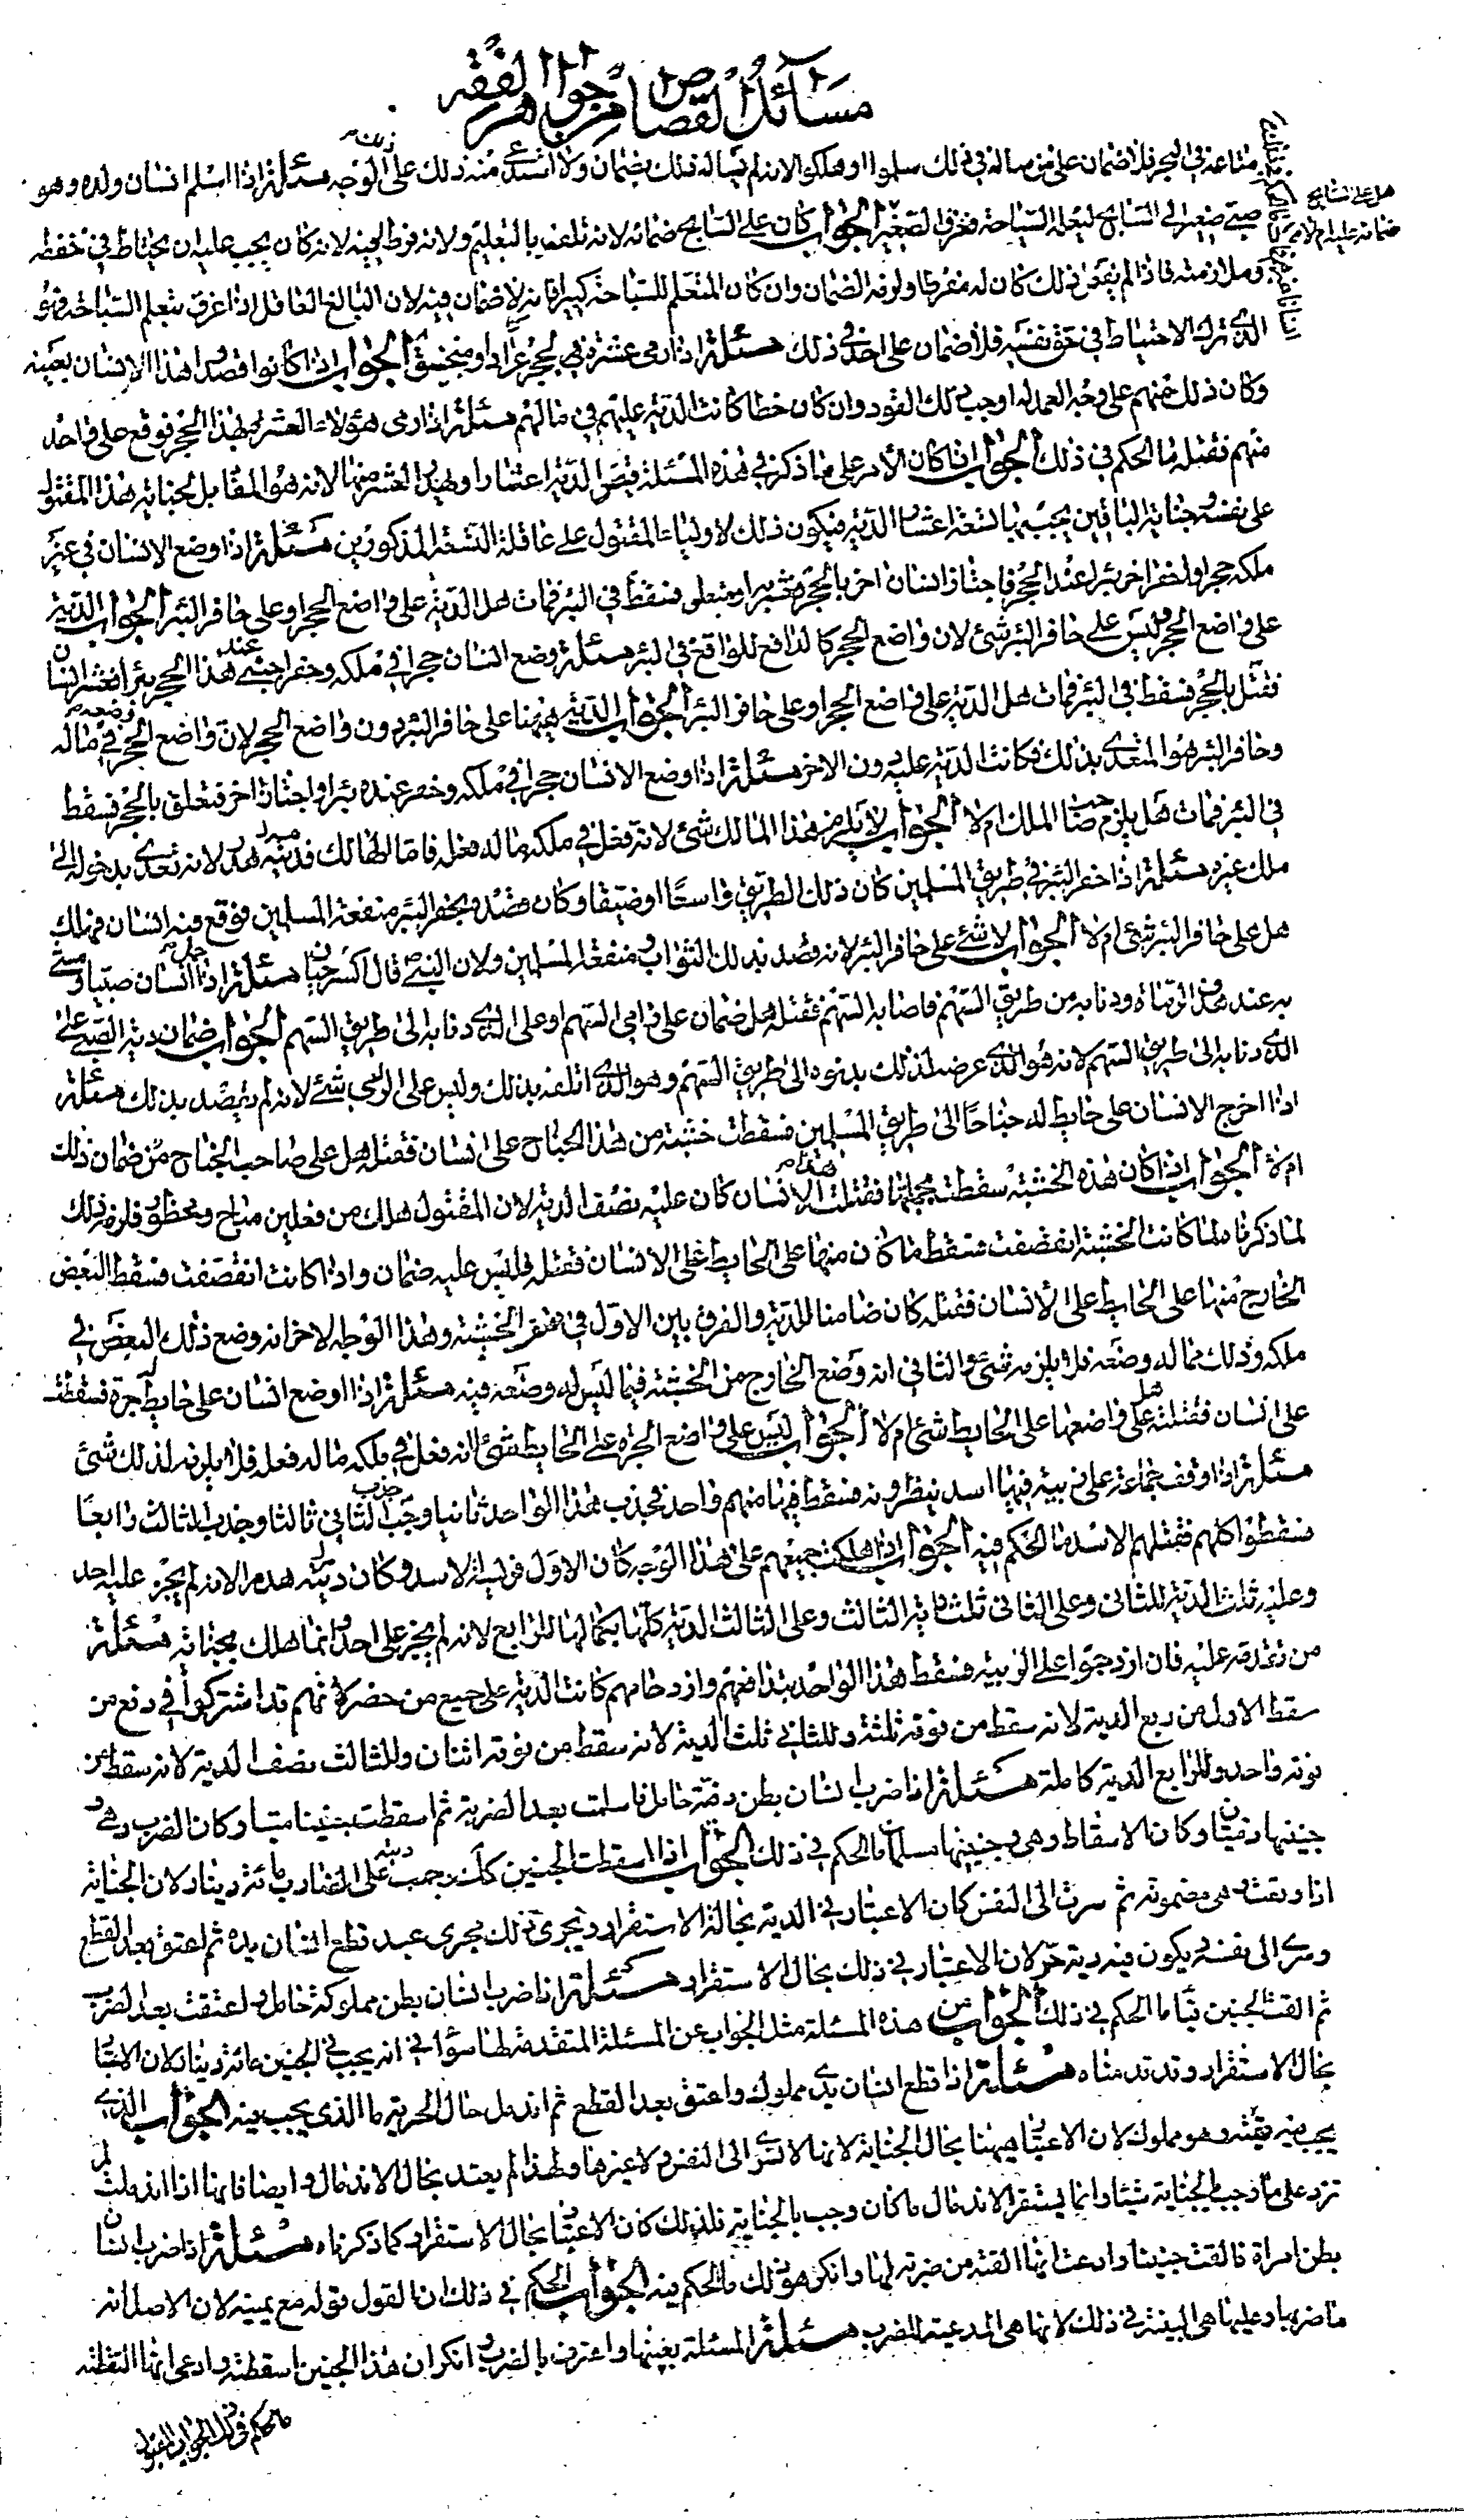 مسائل القصاص من جواهر الفقه
متاعه في البحر فلا ضمان على من سأله في ذلك سلموا او هلكوا لانه لم يتبع سؤاله ذلك بضمان ولا ابتدئ منه ذلك على الوجه مسئلة اذا اسلم انسان ولده وهو
صبى صغير الى السابح ليعلمه السباحة فغرق الصغير الجواب كان على السابح ضمانه لانه تلف بالتعليم ولانه فرط فيه لانه كان يجب عليه ان يحتاط في حفظه
وملازمته فاذا لم يفعل ذلك كان له مفرطا ولزمه الضمان وان كان المتعلم للسباحة كبيرا فانه لا ضمان فيه لان البالغ العاقل اذا غرق بتعلم السباحة فهو
الذى ترك الاحتياط في حق نفسه فلا ضمان على احد في ذلك مسئلة اذا رمى عشرة في حجر عرادة او منجنيق الجواب اذا كانوا قصدوا هذا الانسان بعينه
وكان ذلك منهم على وجه العمد له اوجب ذلك القود وان كان خطا كانت الدية عليهم في مالهم مسئلة اذا رمى هؤلاء العشرة بهذا الحجر فوقع على واحد
منهم فقتله ما الحكم في ذلك الجواب ان كان الامر على ما ذكر في هذه المسئلة قيض الدية اعشارا ويهدر العشر منها لانه هو المقابل لجناية هذا المقتول
على نفسه وجناية الباقين يجب بها تسعة اعشار الدية فيكون ذلك لاولياء المقتول على عاقلة التسعة المذكورين مسئلة اذا وضع الانسان في غير
ملكه حجرا وحفر اخر بئرا عند الحجر فاجتاز انسان اخر بالحجر فتعثر به او يتعلق فسقط في البئر فمات هل الدية على واضع الحجر او على حافر البئر الجواب الدية
على واضع الحجر وليس على حافر البئر شئ لان واضع الحجر كالدافع للواقع في البئر مسئلة وضع انسان حجرا في ملكه وحفر اجنبى عند هذا الحجر بئرا فعثر انسان
فقتل بالحجر فسقط في البئر فمات هل الدية على واضع الحجر او على حافر البئر الجواب الدية ههنا على حافر البئر دون واضع الحجر لان واضع الحجر وضعه في ماله
وحافر البئر هو المتعدى بذلك فكانت الدية عليه دون الاخر مسئلة اذا وضع الانسان حجرا في ملكه وحفر عنده بئرا واجتاز اخر فتعلق بالحجر فسقط
في البئر فمات هل يلزم صاحب الملك ام لا الجواب لا يلزم هذا المالك شئ لانه فعل في ملكه ما له فعله فاما الهالك فديته هدر لانه تعدى بدخوله الى
ملك غيره مسئلة اذا حفر البئر في طريق المسلمين كان ذلك الطريق واسعا او ضيقا وكان قصده بحفر البئر منفعة المسلمين فوقع فيه انسان فهلك
هل على حافر البئر شئ ام لا الجواب لا شئ على حافر البئر لانه قصد بذلك الثواب ومنفعة المسلمين ولان النبى ص قال كسر جبار مسئلة اذا حمل انسان صبيا ومشى
به عند هدف الرماة ودنا به من طريق السهم فاصابه السهم فقتله هل ضمان على رامى السهم او على الذى دنا به الى طريق السهم الجواب ضمان دية الصبى على
الذى دنا به الى طريق السهم لانه هو الذى عرضه لذلك بدنوه الى طريق السهم وهو الذى اتلفه بذلك وليس على الرامى شئ لانه لم يقصد بذلك مسئلة
اذا اخرج الانسان على حايط له جناحا الى طريق المسلمين فسقطت خشبة من هذا الجناح على انسان فقتله هل على صاحب الجناح من ضمان ذلك
ام لا الجواب اذا كان هذه الخشبة سقطت بجملتها فقتلت هذا الانسان كان عليه نصف الدية لان المقتول هلك من فعلين مباح ومحظور فلزمه ذلك
لما ذكرناه ولما كانت الخشبة انقصفت فسقط ما كان منها على الحايط على الانسان فقتله فليس عليه ضمان واذا كانت انقصفت فسقط البعض
الخارج منها على الحايط على الانسان فقتله كان ضامنا للدية والفرق بين الاول في الخشبة وهذا الوجه الاخر انه وضع ذلك البعض في
ملكه وذلك مما له وضعه فلا يلزمه شئ والثانى انه وضع الخارج من الخشبة فيما ليس له وضعه فيه مسئلة اذا وضع انسان على حايط له جرة فسقطت
على انسان فقتلته هل على واضعها على الحايط شئ ام لا الجواب ليس على واضع الجرة على الحايط شئ لانه فعل في ملكه ما له فعله فلا يلزمه لذلك شئ
مسئلة اذا وقف جماعة على زبية فيها اسد ينظرونه فسقط فيها منهم واحد فجذب هذا الواحد ثانيا وجذب الثانى ثالثا وجذب الثالث رابعا
فسقطوا كلهم فقتلهم الاسد ما الحكم فيه الجواب اذا هلك جميعهم على هذا الوجه كان الاول فريسة الاسد وكان ديته هدرا لانه لم يجز عليه احد
وعليه ثلث الدية للثانى وعلى الثانى ثلثا دية الثالث وعلى الثالث الدية كلها بكمالها للرابع لانه لم يجز على احد وانما هلك بجناية مسئلة
من تقدمه عليه فان ازدحموا على الزبية فسقط هذا الواحد بتدافعهم وازدحامهم كانت الدية على جميع من حضر لانهم قد اشتركوا في دفع من
سقط الاول من ربع الدية لانه سقط من فوقه ثلثة وللثانى ثلث الدية لانه سقط من فوقه اثنان وللثالث نصف الدية لانه سقط من
فوقه واحد وللرابع الدية كاملة مسئلة اذا ضرب انسان بطن ذمية حامل فاسلمت بعد الضربة ثم اسقطت جنينا ميتا وكان الضرب وهى و
جنينها ذميان وكان الاسقاط وهى وجنينها مسلمان ما الحكم في ذلك الجواب اذا اسقطت الجنين كذلك وجب على الضارب ديته مائة دينار لان الجناية
اذا وقعت وهى مضمونة ثم سرت الى النفس كان الاعتبار في الدية بحالة الاستقرار ويجرى ذلك مجرى عبد قطع انسان يده ثم اعتق بعد القطع
وسرى الى نفسه ويكون فيه دية حر لان الاعتبار في ذلك بحال الاستقرار مسئلة اذا ضرب انسان بطن مملوكة حامل واعتقت بعد الضرب
ثم القت الجنين ميتا ما الحكم في ذلك الجواب عن هذه المسئلة مثل الجواب عن المسئلة المتقدمة لها سواء في انه يجب في الجنين مائة دينار لان الاعتبار
بحال الاستقرار وقد قدمناه مسئلة اذا قطع انسان يدى مملوك واعتق بعد القطع ثم اندمل حال الحرية ما الذى يجب فيه الجواب الذى
يجب فيه قيمته وهو مملوك لان الاعتبار ههنا بحال الجناية لانها لا تسرى الى النفس ولا غيرها ولهذا لم يعتد بحال الاندمال وايضا فانها اذا اندملت لم
تزد على ما وجب بالجناية شيئا وانما يستقر الاندمال ما كان وجب بالجناية فلذلك كان الاعتبار بحال الاستقرار كما ذكرناه مسئلة اذا ضرب انسان
بطن امراة فالقت جنينا وادعت انها القته من ضربته لها وانكر هو ذلك ما الحكم فيه الجواب الحكم في ذلك ان القول قوله مع يمينه لان الاصل انه
ما ضربها وعليها هى البينة في ذلك لانها هى المدعية للضرب مسئلة المسئلة بعينها واعترف بالضرب وانكر ان هذا الجنين اسقطته وادعى انها التقطته
ما الحكم في ذلك الجواب القول
هل على السابح
ضمانه عليه ام لا